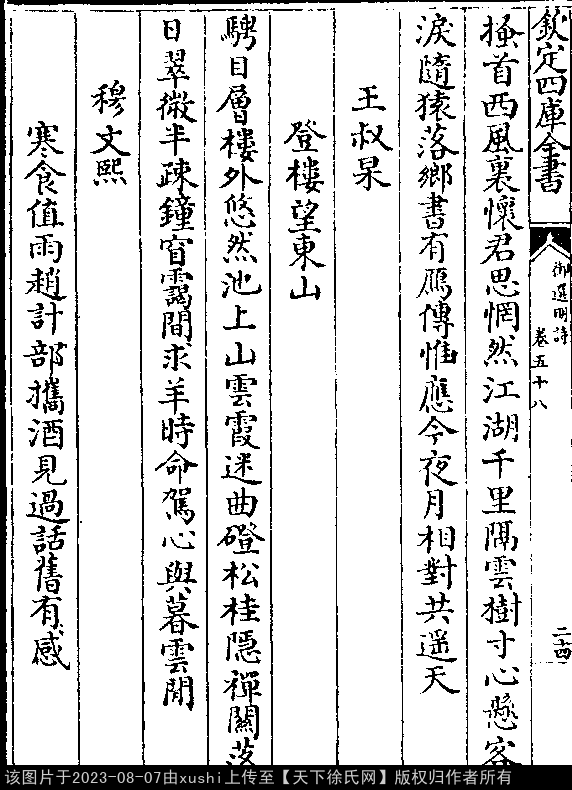 欽定四庫全書
御選明詩
卷五十八
二十四
搔首西風裏懷君思惘然江湖千里隔雲樹寸心懸客
淚隨猿落鄉書有鴈傳惟應今夜月相對共遥天
王叔杲
登樓望東山
騁目層樓外悠然池上山雲霞迷曲磴松桂隱禪關落
日翠微半疎鐘窅靄間求羊時命駕心與暮雲閒
穆文熙
寒食值雨趙計部攜酒見過話舊有感
该图片于2023-08-07由xushi上传至【天下徐氏网】版权归作者所有